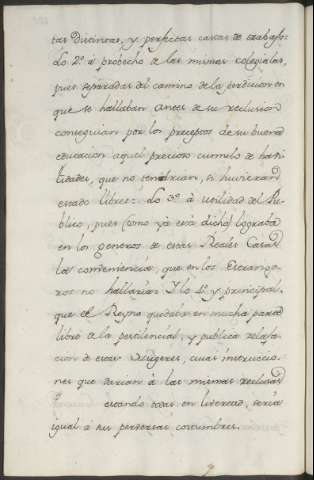 tas Distintas, y perfectas casas de trabajo:
Lo 2º. a probecho de las mismas colegialas,
pues separadas del camino de la perdicion en
que se hallaban antes de su reclusion
conseguian por los preceptos de su buena
educacion aquel precioso cumulo de havi-
lidades, que no tendrian, si huvieran
estado libres: Lo 3º. a utilidad del Pu-
blico, pues (como ya está dicho) lograba
en los generos de estas Reales Casas
la conveniencia, que en los Estrange-
ros no hallarian: Y lo 4º. y principal,
que el Reyno quedaba en mucha parte
libre de la pestilencial, y publica relaja-
cion de estas Mugeres, cuias instruccio-
nes que darian á las mismas reclusas
estando todas en libertad, seria
igual á sus perversas costumbres.